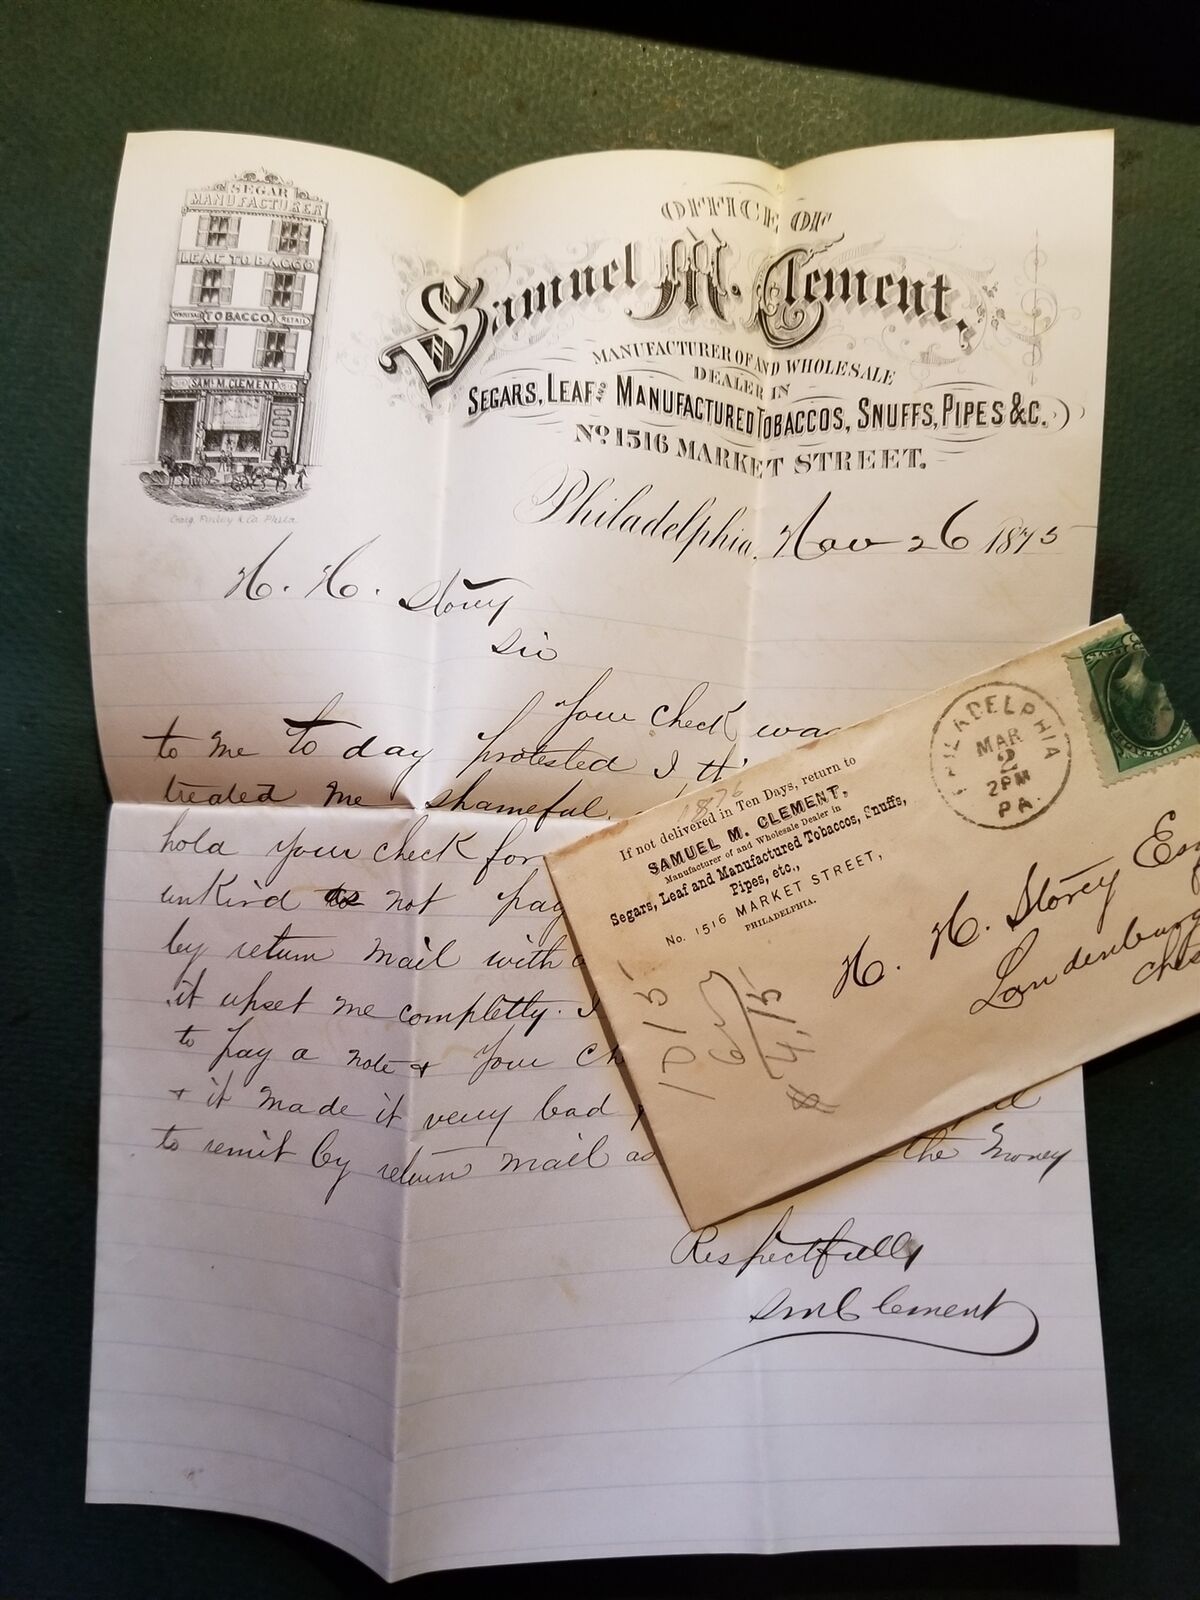 SEGAR
MANUFACTURER
LEAF TOBACCO
WHOLESALE TOBACCO. RETAIL
SAML. M. CLEMENT
Craig, Finley & Co. Phila.
OFFICE OF
Samuel M. Clement,
MANUFACTURER OF AND WHOLESALE
DEALER IN
SEGARS, LEAF AND MANUFACTURED TOBACCOS, SNUFFS, PIPES &C.
No. 1516 MARKET STREET.
Philadelphia, Nov 26 1875
H. H. Story
Sir
Your check was
to me to day protested I
treated me shameful.
hold your check for
unkind not pay
by return mail with
it upset me completly. I
to pay a note & your ch
& it made it very bad
to remit by return mail as the money
Respectfully
SM Clement
PHILADELPHIA
MAR
2
2 PM
PA.
1876
If not delivered in Ten Days, return to
SAMUEL M. CLEMENT,
Manufacturer of and Wholesale Dealer in
Segars, Leaf and Manufactured Tobaccos, Snuffs,
Pipes, etc.,
No. 1516 MARKET STREET,
PHILADELPHIA.
H. H. Storey Esq
Landenburg
Ches
1015
600
$4,15